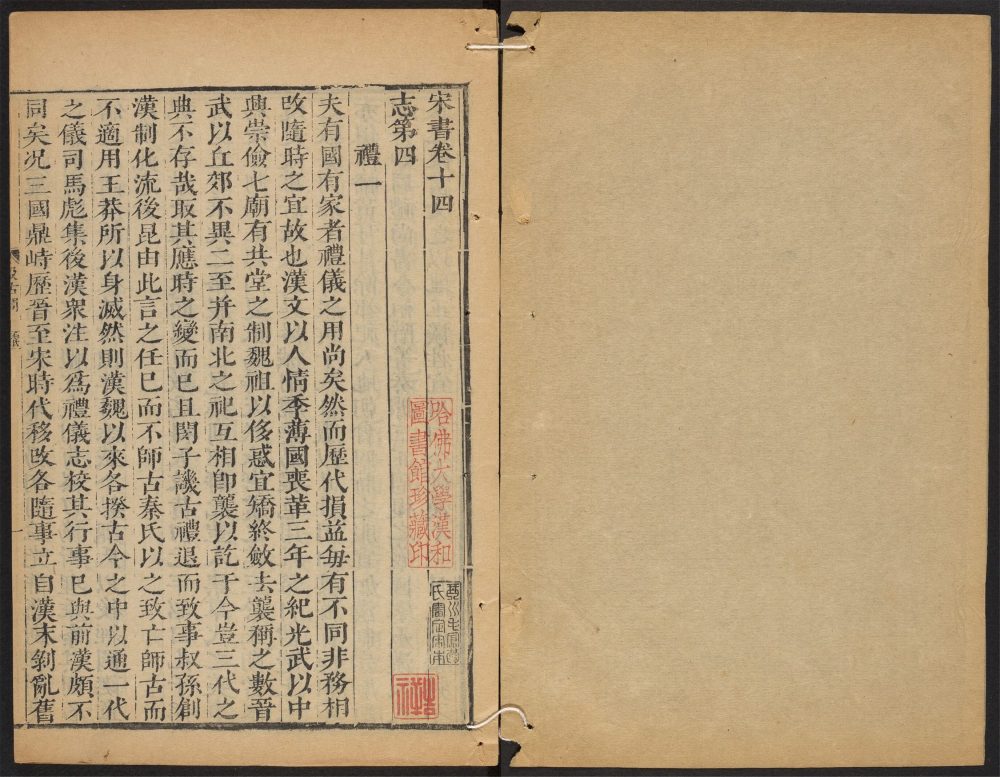 宋書卷十四
志第四
禮一
夫有國有家者禮儀之用尚矣然而歷代損益每有不同非務相
改隨時之宜故也漢文以人情季薄國喪革三年之紀光武以中
興崇儉七廟有共堂之制魏祖以侈惑宜矯終斂去襲稱之數晉
武以丘郊不異二至并南北之祀互相卽襲以訖于今豈三代之
典不存哉取其應時之變而已且閔子譏古禮退而致事叔孫創
漢制化流後昆由此言之任己而不師古秦氏以之致亡師古而
不適用王莽所以身滅然則漢魏以來各揆古今之中以通一代
之儀司馬彪集後漢衆注以爲禮儀志校其行事已與前漢頗不
同矣况三國鼎峙歷晉至宋時代移改各隨事立自漢末剝亂舊
哈佛大學漢和
圖書館珍藏印